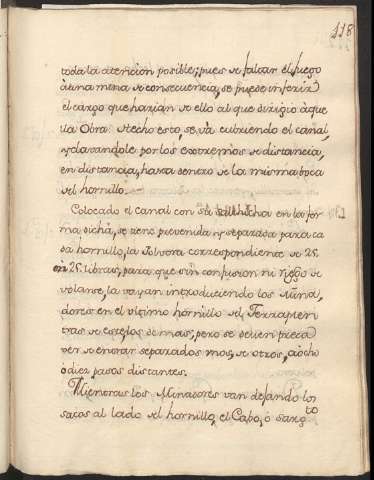 118
toda la atencion posible; pues de faltar el fuego
à una mina de consecuencia, se puede inferir
el cargo que harian de ello al que dirigiò aque
lla Obra: Hecho esto, se và cubriendo el canal,
y clavandole por los extremos de distancia,
en distancia, hasta dentro de la misma boca
del hornillo.
Colocado el canal con su salchicha en la for
ma dicha, se tiene prevenida y separada para ca
da hornillo, la Polvora correspondiente de 25
en 25 libras, para que sin confusion ni riesgo de
volarse, la vayan introduciendo los Mina,
dores en el ultimo hornillo del Terraplen
tras de ellos de mas; pero se deven preca
ver de entrar separados unos, de otros, à ocho
ò diez pasos distantes.
Mientras los Minadores van dejando los
sacos al lado del hornillo, el Cabo, ò Sarg.to